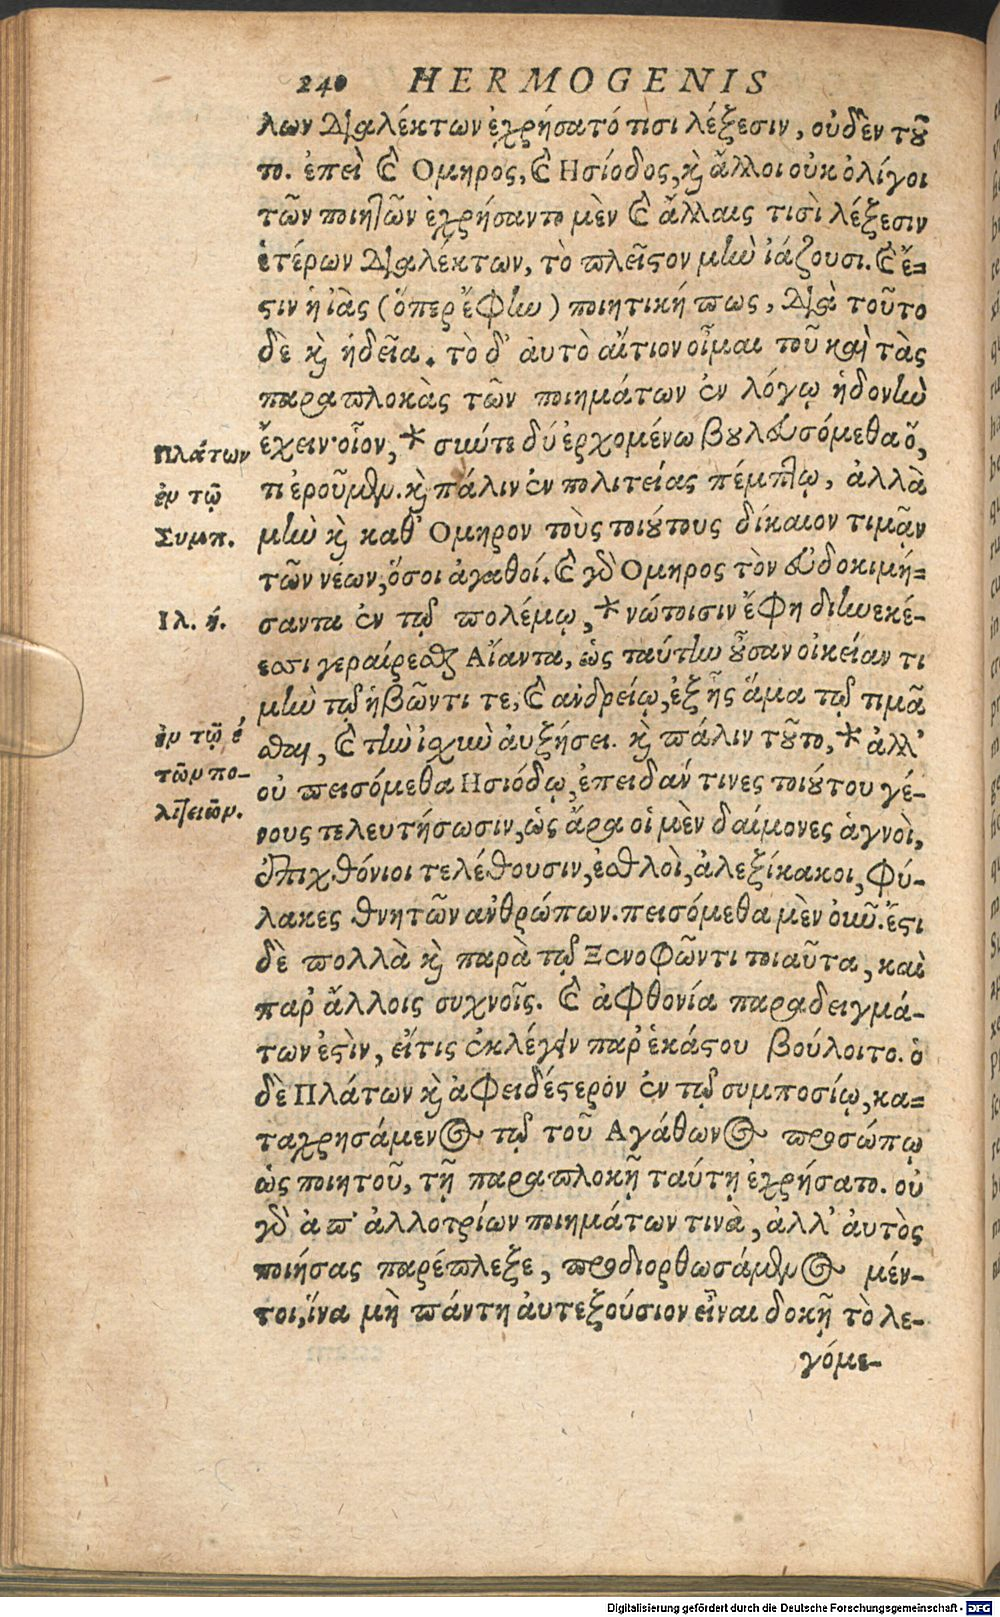 240 HERMOGENIS
λων διαλέκτων ἐχρήσατό τισι λέξεσιν, οὐδὲν τοῦ
το. ἐπεὶ καὶ Ομηρος, καὶ Ησίοδος, καὶ ἄλλοι οὐκ ὀλίγοι
τῶν ποιητῶν ἐχρήσαντο μὲν καὶ ἄλλαις τισὶ λέξεσιν
ἑτέρων διαλέκτων, τὸ πλεῖστον μὴν ἰάζουσι. καὶ ἔ=
στιν ἡ ἰὰς (ὅπερ ἔφην) ποιητική πως, διὰ τοῦτο
δὲ καὶ ἡδεῖα. τὸ δ' ἀυτὸ αἴτιον οἶμαι τοῦ καὶ τὰς
παραπλοκὰς τῶν ποιημάτων ἐν λόγῳ ἡδονὴν
Πλάτων
ἔχειν· οἷον, * σιωύτε δύ ἐρχομένω βουλευσόμεθα ὅ,
ἐν τῷ
τι ἐροῦμεν. καὶ πάλιν ἐν πολιτείας πέμπτῳ, ἀλλὰ
Συμπ.
μὴν καὶ καθ' Ομηρον τοὺς τοιούτους δίκαιον τιμᾷν
τῶν νέων, ὅσοι ἀγαθοί. καὶ γὰρ Ομηρος τὸν εὐδοκιμή=
Ιλ. ή.
σαντα ἐν τῷ πολέμῳ, * νώτοισιν ἔφη διηνεκέ-
εσσι γεραίρεσθαι Αἴαντα, ὡς ταύτην οὖσαν οἰκείαν τι
μὴν τῷ ἡβῶντι τε, καὶ ἀνδρείῳ, ἐξ ἧς ἅμα τῷ τιμᾶ
ἐν τῷ έ
σθαι, καὶ τὴν ἰσχὺν ἀυξήσει. καὶ πάλιν τοῦτο, * ἀλλ'
τῶν πο-
οὐ πεισόμεθα Ησιόδῳ, ἐπειδάν τινες τοιούτου γέ-
λιτειῶν.
νους τελευτήσωσιν, ὡς ἄρα οἱ μὲν δαίμονες ἁγνοὶ,
ἐπιχθόνιοι τελέθουσιν, ἐσθλοὶ, ἀλεξίκακοι, φύ-
λακες θνητῶν ἀνθρώπων. πεισόμεθα μὲν οὖν. ἔστι
δὲ πολλὰ καὶ παρὰ τῷ Ξενοφῶντι τοιαῦτα, καὶ
παρ' ἄλλοις συχνοῖς. καὶ ἀφθονία παραδειγμά-
των ἐστὶν, εἴτις ἐκλέγειν παρ' ἑκάστου βούλοιτο. ὁ
δὲ Πλάτων καὶ ἀφειδέστερόν ἐν τῷ συμποσίῳ, κα=
ταχρησάμενος τῷ τοῦ Αγάθωνος προσώπῳ
ὡς ποιητοῦ, τῇ παραπλοκῇ ταύτῃ ἐχρήσατο. οὐ
γὰρ ἀπ' ἀλλοτρίων ποιημάτων τινὰ, ἀλλ' ἀυτὸς
ποιήσας παρέπλεξε, προδιορθωσάμενος μέν-
τοι, ἵνα μὴ πάντη ἀυτεξούσιον εἶναι δοκῇ τὸ λε-
γόμε-
Digitalisierung gefördert durch die Deutsche Forschungsgemeinschaft - DFG